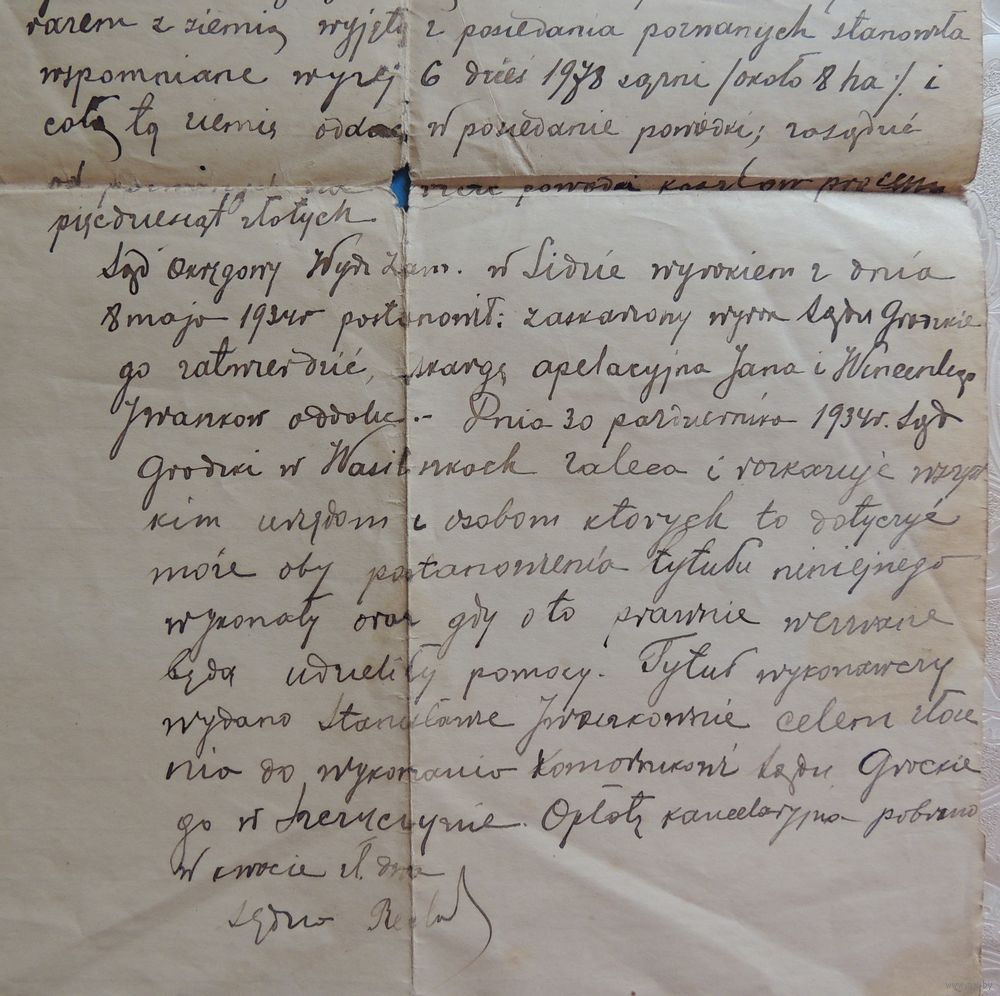 razem z ziemią wyjętą z posiedania pozwanych stanowiła
wspomniane wyżej 6 dzies 1978 sążni /około 8 ha/. i
całą tą ziemię oddać w posiedanie powódki; zasądzić
od pozwanych na rzecz powódki kosztów procesu
pięćdziesiąt złotych
Sąd Okręgowy Wydz Zam. w Lidzie wyrokiem z dnia
8 maja 1934r postanowił: zaskarżony wyrok Sądu Grodzkie
go zatwierdzić, skargę apelacyjną Jana i Wincentego
Iwaszków oddalić.- Dnia 30 października 1934r. Sąd
Grodzki w Wasiliszkach zaleca i rozkazuje wszyst
kim urzędom i osobom których to dotyczyć
może aby postanowienia tytułu niniejszego
wykonały oraz gdy o to prawnie wezwane
będą udzieliły pomocy. Tytuł wykonawczy
wydano Stanisławie celem złoże
nia do wykonania Komornikowi Sądu Grockie
go w Szczuczynie. Opłatę kancelaryjną pobrano
w kwocie zł. dwa
Sędzia